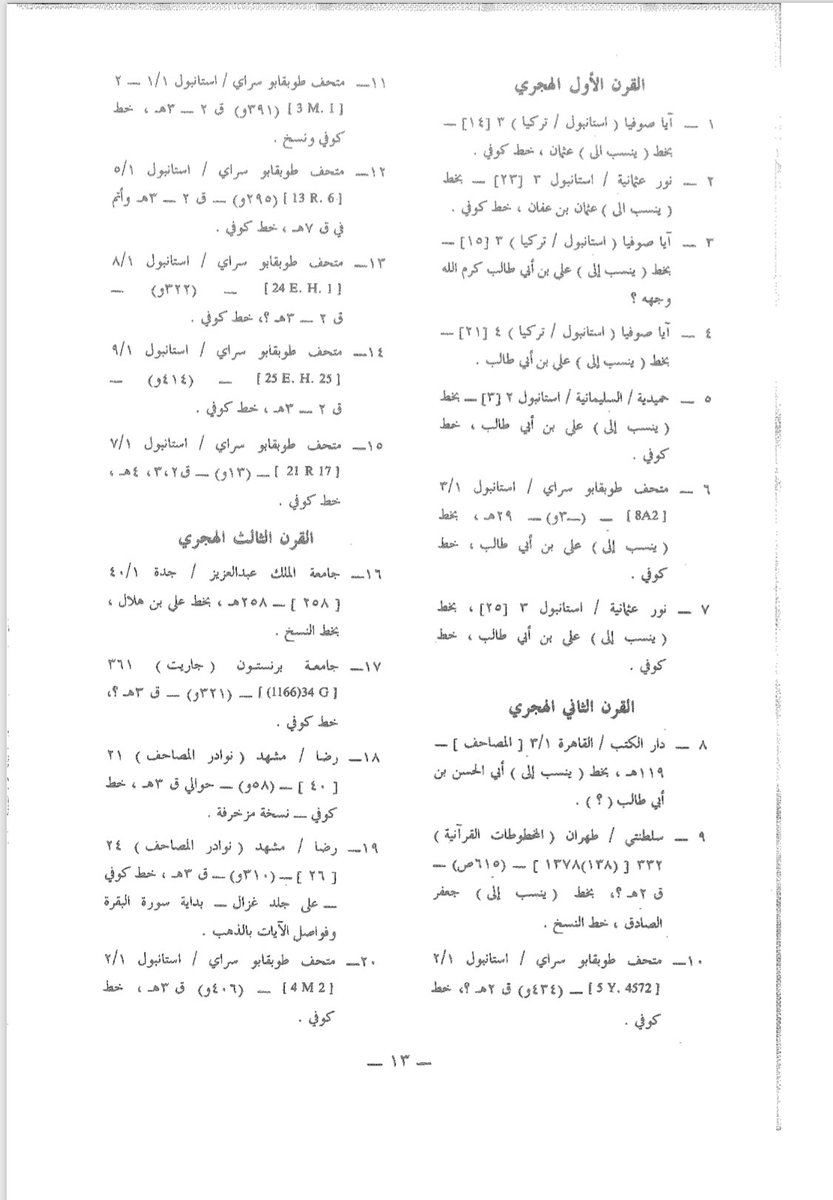 القرن الأول الهجري
١ ــ آيا صوفيا ( استانبول / تركيا ) ٣ [١٤] ــ
بخط ( ينسب الى ) عثمان ، خط كوفي .
٢ ــ نور عثمانية / استانبول ٣ [٢٣] ــ بخط
( ينسب الى ) عثمان بن عفان ، خط كوفي .
٣ ــ آيا صوفيا ( استانبول / تركيا ) ٣ [١٥] ــ
بخط ( ينسب إلى ) علي بن أبي طالب كرم الله
وجهه ؟
٤ ــ آيا صوفيا ( استانبول / تركيا ) ٤ [٢١] ــ
بخط ( ينسب إلى ) علي بن أبي طالب .
٥ ــ حميدية / السليمانية / استانبول ٢ [٣] ــ بخط
( ينسب إلى ) علي بن أبي طالب ، خط
كوفي .
٦ ــ متحف طوبقابو سراي / استانبول ٣/١
[8A2] ــ (ــ٣و) ــ ٢٩هـ ، بخط
( ينسب إلى ) علي بن أبي طالب ، خط
كوفي .
٧ ــ نور عثمانية / استانبول ٣ [٢٥] ، بخط
( ينسب إلى ) علي بن أبي طالب ، خط
كوفي .
القرن الثاني الهجري
٨ ــ دار الكتب / القاهرة ٣/١ [ المصاحف ] ــ
١١٩هـ ، بخط ( ينسب إلى ) أبي الحسن بن
أبي طالب ( ؟ ) .
٩ ــ سلطنتي / طهران ( المخطوطات القرآنية )
٣٣٢ [ (١٣٨)١٣٧٨ ] ــ (٦١٥ص) ــ
ق ٢هـ ؟، بخط ( ينسب إلى ) جعفر
الصادق ، خط النسخ .
١٠ــ متحف طوبقابو سراي / استانبول ٢/١
[5 Y. 4572] ــ (٤٣٤و) ق ٢هـ ؟، خط
كوفي .
١١ــ متحف طوبقابو سراي / استانبول ١/١ ــ ٢
[3 M. 1] (٣٩١و) ق ٢ ــ ٣هـ ، خط
كوفي ونسخ .
١٢ــ متحف طوبقابو سراي / استانبول ٥/١
[13 R. 6] (٢٩٥و) ــ ق ٢ ــ ٣هـ وأتم
في ق ٧هـ ، خط كوفي .
١٣ــ متحف طوبقابو سراي / استانبول ٨/١
[24 E. H. 1] ــ (٣٢٢و) ــ
ق ٢ ــ ٣هـ ؟، خط كوفي .
١٤ــ متحف طوبقابو سراي / استانبول ٩/١
[25 E. H. 25] ــ (٤١٤و) ــ
ق ٢ ــ ٣هـ ، خط كوفي .
١٥ــ متحف طوبقابو سراي / استانبول ٧/١
[21 R 17] ــ (١٣و) ــ ق٢، ٣، ٤هـ ،
خط كوفي .
القرن الثالث الهجري
١٦ــ جامعة الملك عبدالعزيز / جدة ٤٠/١
[ ٢٥٨ ] ــ ٢٥٨هـ ، بخط علي بن هلال ،
بخط النسخ .
١٧ــ جامعة برنستون ( جاريت ) ٣٦١
[(1166)34 G] ــ (٣٢١و) ــ ق ٣هـ ؟،
خط كوفي .
١٨ــ رضا / مشهد ( نوادر المصاحف ) ٢١
[ ٤٠ ] ــ (٥٨و) ــ حوالي ق ٣هـ ، خط
كوفي ــ نسخة مزخرفة .
١٩ــ رضا / مشهد ( نوادر المصاحف ) ٢٤
[ ٢٦ ] ــ (٣١٠و) ــ ق ٣هـ ، خط كوفي
ــ على جلد غزال ــ بداية سورة البقرة
وفواصل الآيات بالذهب .
٢٠ــ متحف طوبقابو سراي / استانبول ٢/١
[4 M 2] ــ (٤٠٦و) ق ٣هـ ، خط
كوفي .
ــ ١٣ ــ